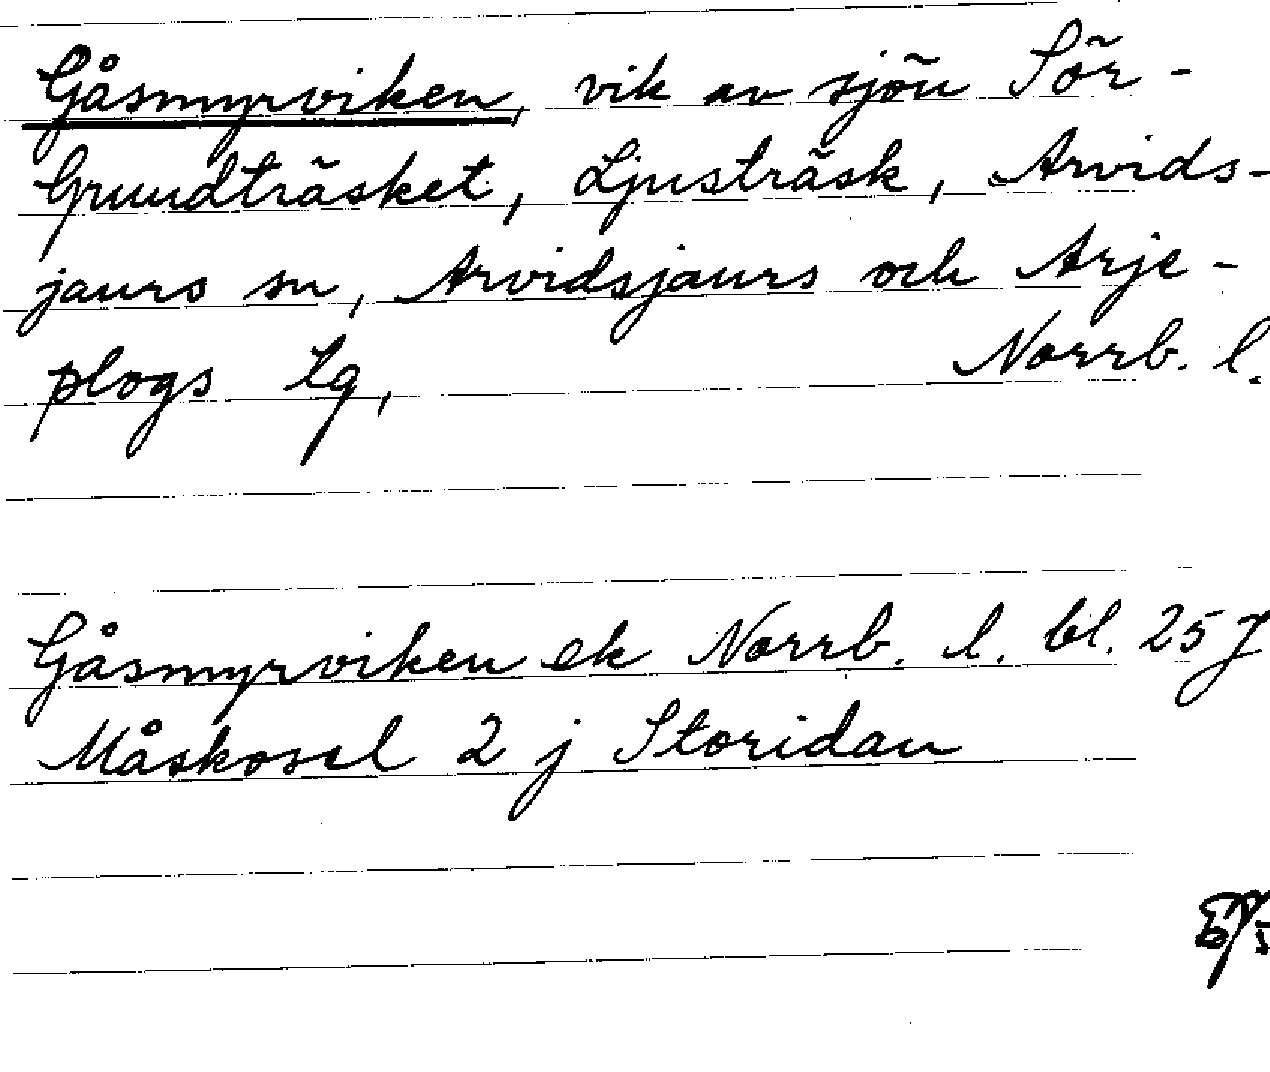 Gåsmyrviken, vik av sjön Sör-
Grundträsket, Ljusträsk, Arvids-
jaurs sn, Arvidsjaurs och Arje-
plogs lg, Norrb. l.
Gåsmyrviken ek Norrb. l. bl. 25 J
Måskosel 2 j Storidan